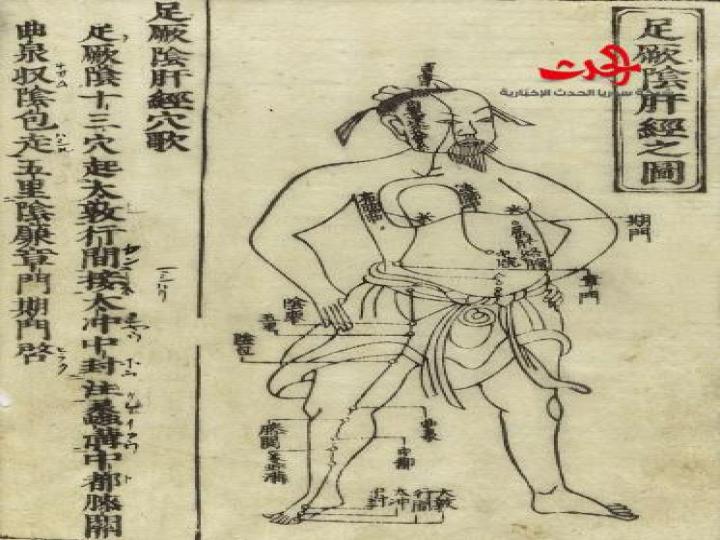 足厥陰肝經之圖
الحدث
شبكة سوريا الحدث الإخبارية
足厥陰肝經穴歌
足厥陰十三穴起太敦行間接太冲中封注蠡溝中都膝關
曲泉収陰包走五里陰廉章門期門啓
期門
章門
陰廉
五里
陰包
膝關
蠡溝
曲泉
中都
中封
太冲
行間
大敦